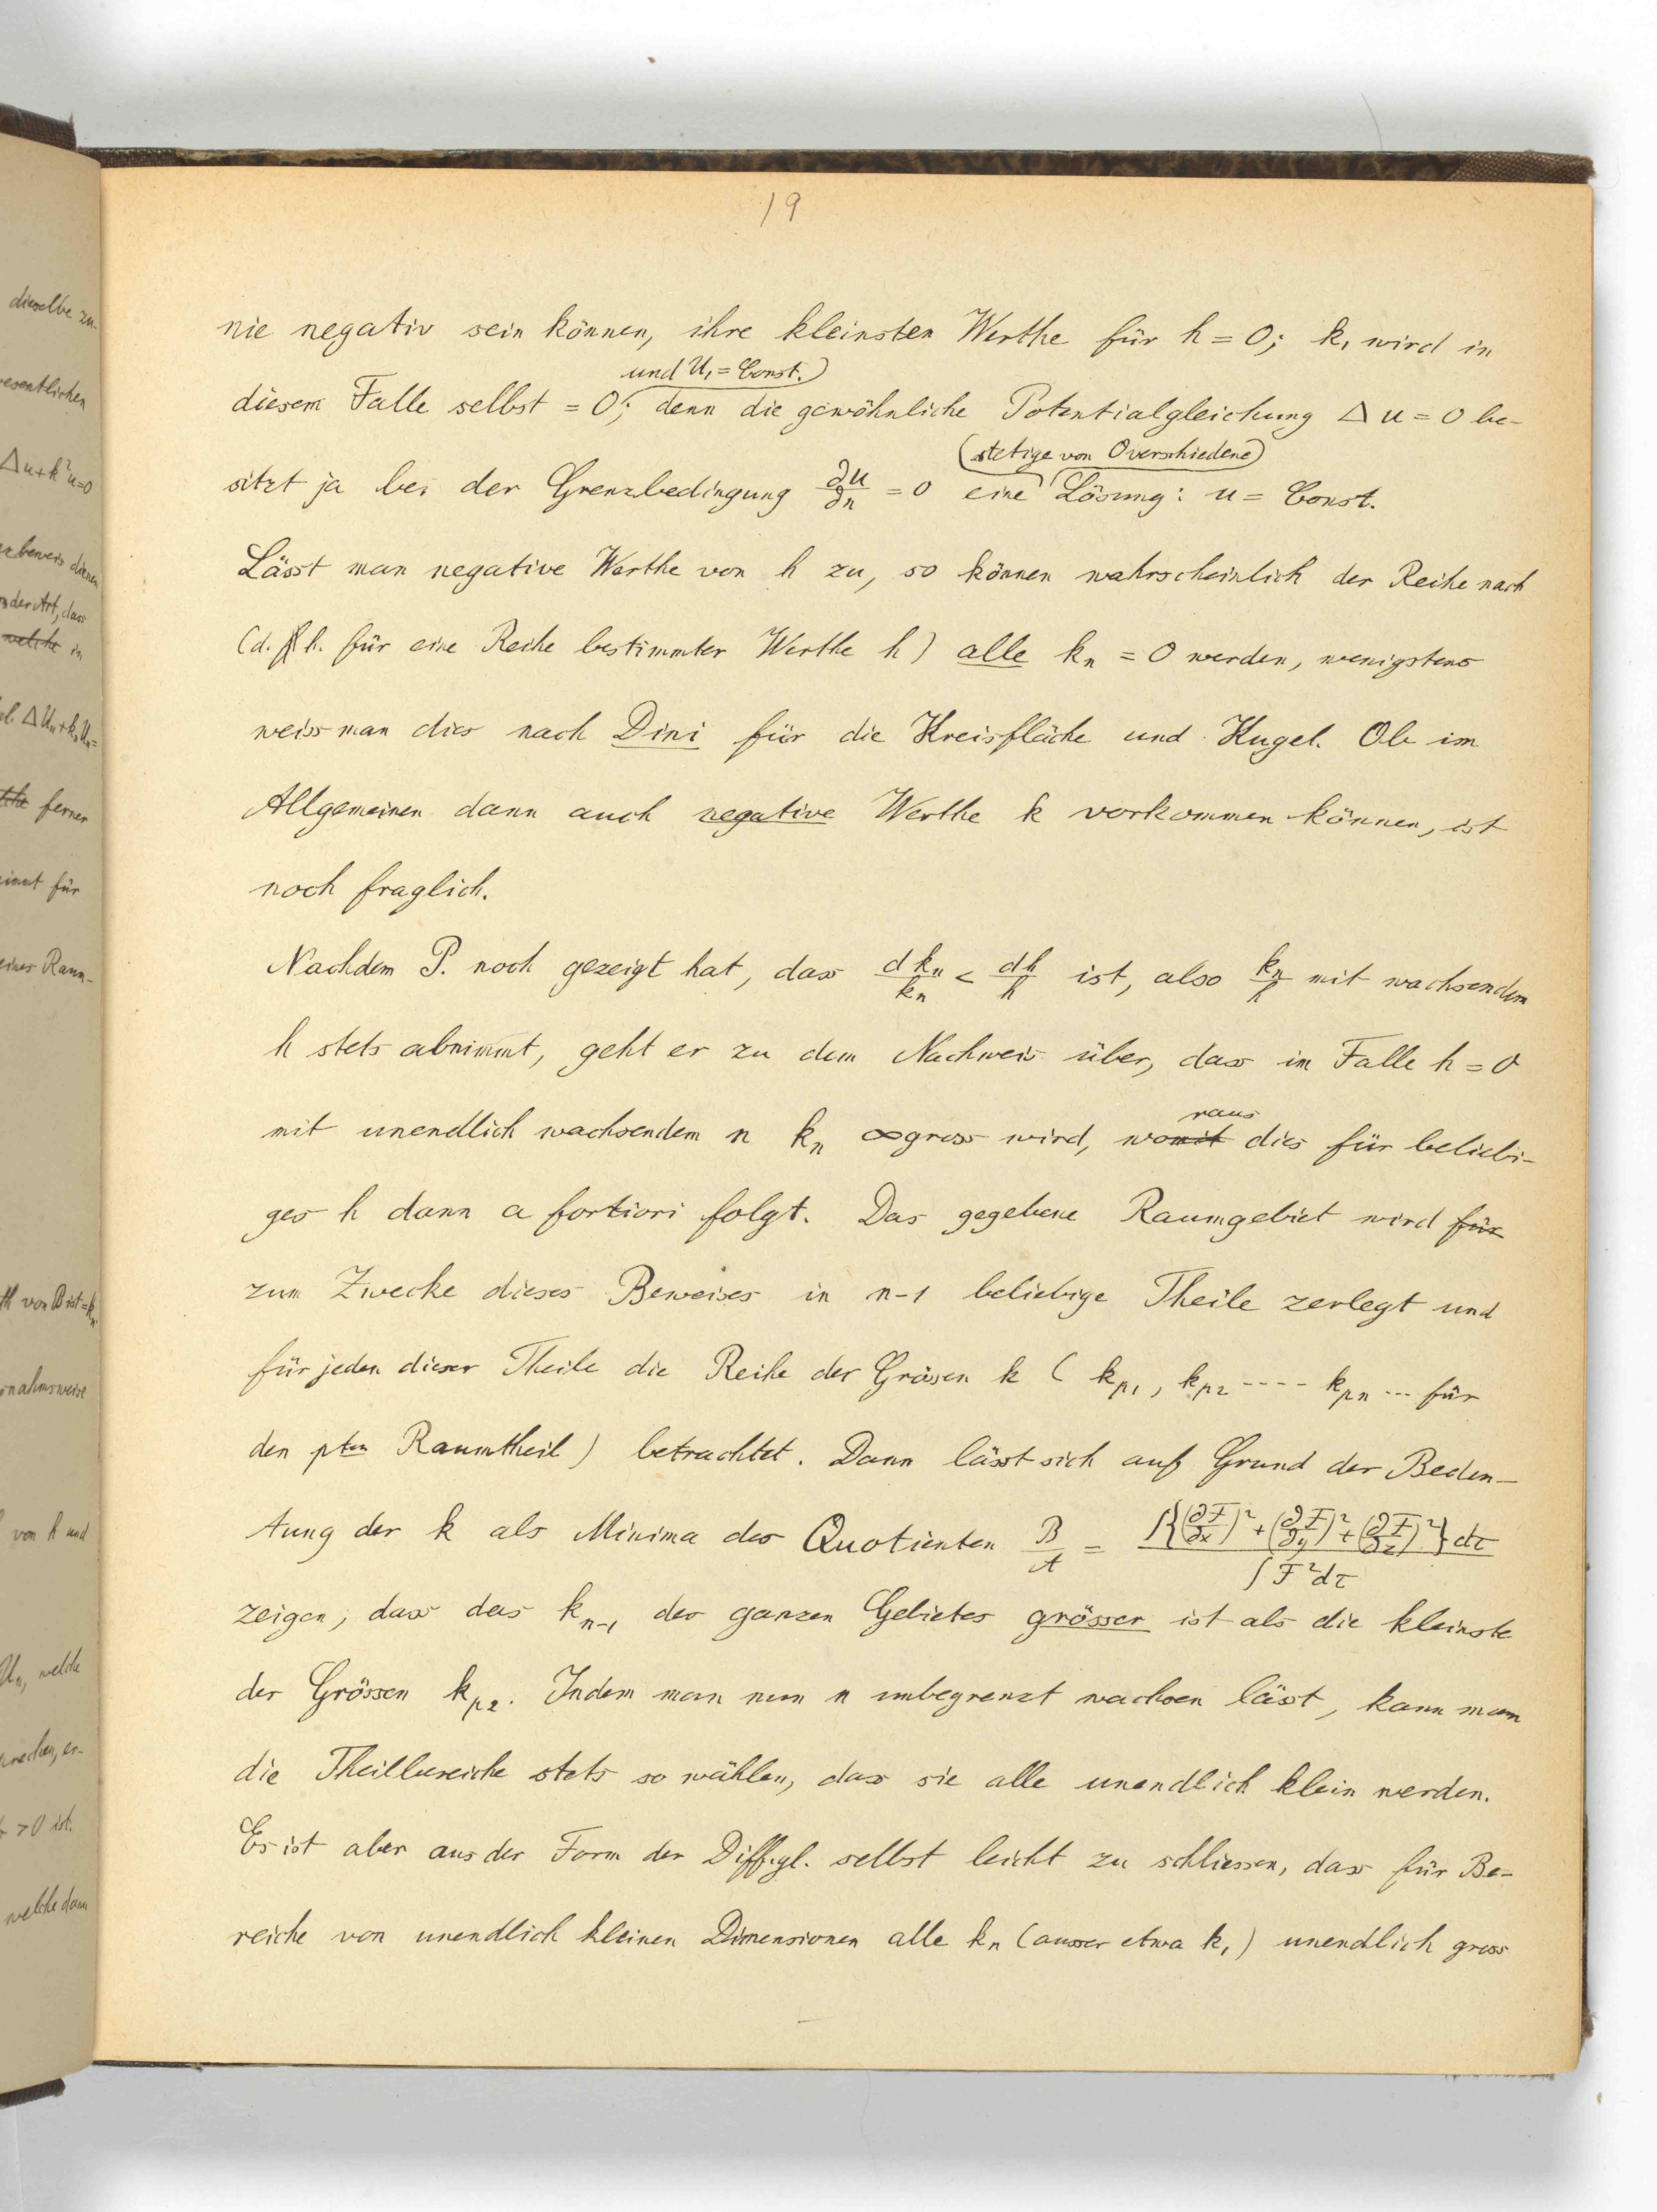 19
nie negativ sein können, ihre kleinsten Werthe für h = 0; k₁ wird in
und U₁ = Const.)
diesem Falle selbst = 0; denn die gewöhnliche Potentialgleichung Δ u = 0 be-
(stetige von 0 verschiedene)
sitzt ja bei der Grenzbedingung ∂u/∂n = 0 eine Lösung: u = Const.
Lässt man negative Werthe von h zu, so können wahrscheinlich der Reihe nach
(d. h. für eine Reihe bestimmter Werthe h) alle kₙ = 0 werden, wenigstens
weiss man dies nach Dini für die Kreisfläche und Kugel. Ob im
Allgemeinen dann auch negative Werthe k vorkommen können, ist
noch fraglich.
Nachdem P. noch gezeigt hat, dass dkₙ/kₙ < dh/h ist, also kₙ/h mit wachsendem
h stets abnimmt, geht er zu dem Nachweis über, dass im Falle h = 0
raus
mit unendlich wachsendem n kₙ ∞ gross wird, womit dies für beliebi-
ges h dann a fortiori folgt. Das gegebene Raumgebiet wird für
zum Zwecke dieses Beweises in n-1 beliebige Theile zerlegt und
für jeden dieser Theile die Reihe der Grössen k ( kₚ₁, kₚ₂ ---- kₚₙ ... für
den pten Raumtheil) betrachtet. Dann lässt sich auf Grund der Bedeu-
tung der k als Minima des Quotienten B/A = ∫{(∂F/∂x)² + (∂F/∂y)² + (∂F/∂z)²}dτ / ∫F²dτ
zeigen, dass das kₙ₋₁ des ganzen Gebietes grösser ist als die kleinste
der Grössen kₚ₂. Indem man nun n unbegrenzt wachsen lässt, kann man
die Theilbereiche stets so wählen, dass sie alle unendlich klein werden.
Es ist aber aus der Form der Diff.gl. selbst leicht zu schliessen, dass für Be-
reiche von unendlich kleinen Dimensionen alle kₙ (ausser etwa k₁) unendlich gross